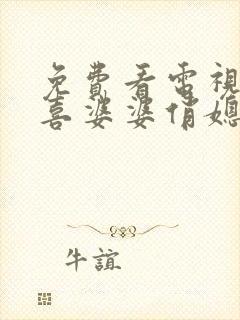 免費看電視
喜婆婆俏媳
牛誼